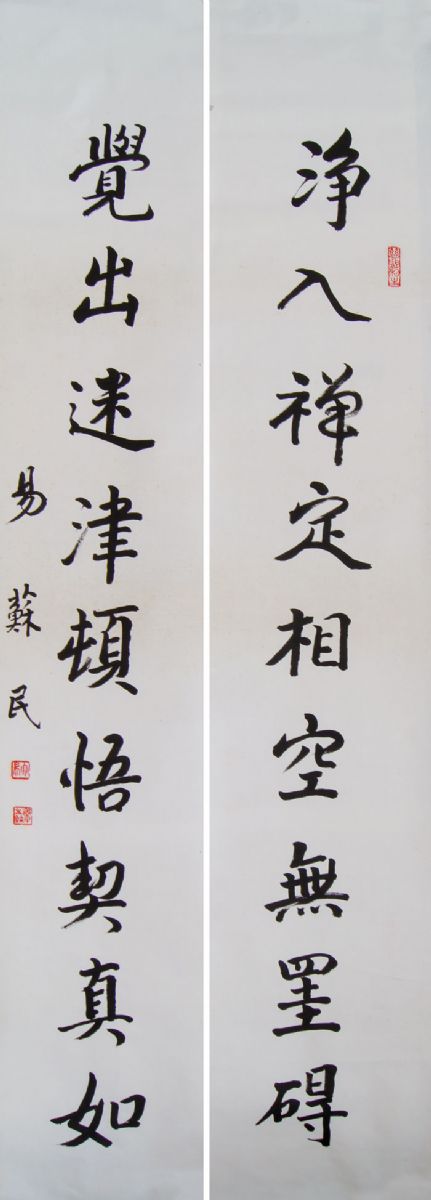 净入禅定相空無罣碍
覺出迷津頓悟契真如
易蘇民